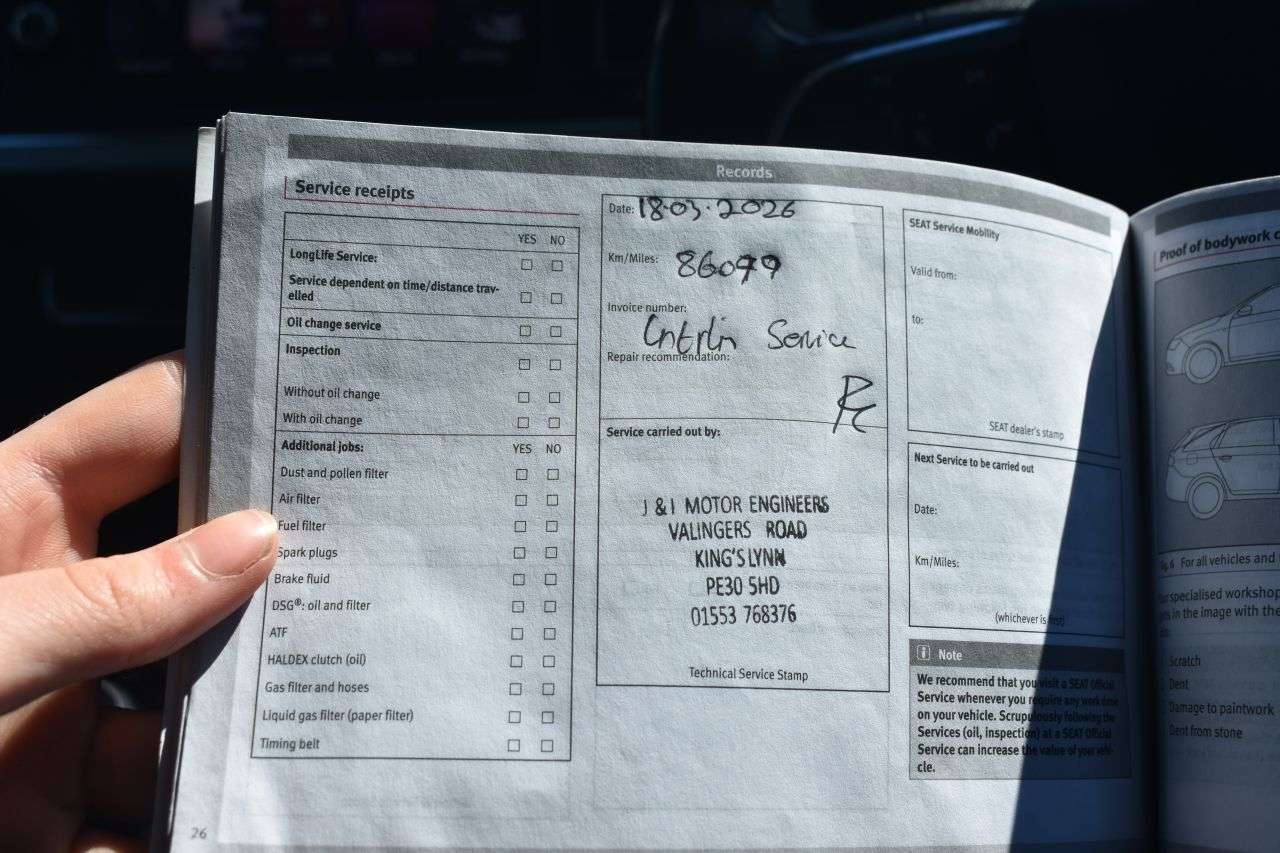 Records
Service receipts
YES NO
LongLife Service:
Service dependent on time/distance trav-
elled
Oil change service
Inspection
Without oil change
With oil change
Additional jobs: YES NO
Dust and pollen filter
Air filter
Fuel filter
Spark plugs
Brake fluid
DSG®: oil and filter
ATF
HALDEX clutch (oil)
Gas filter and hoses
Liquid gas filter (paper filter)
Timing belt
26
Date: 18.03.2026
Km/Miles:
Invoice number:
Service
Repair recommendation:
Service carried out by:
J & I MOTOR ENGINEERS
VALINGERS ROAD
KING'S LYNN
PE30 5HD
01553 768376
Technical Service Stamp
SEAT Service Mobility
Valid from:
to:
SEAT dealer's stamp
Next Service to be carried out
Date:
Km/Miles:
(whichever is first)
Note
We recommend that you visit a SEAT Official
Service whenever you require any work done
on your vehicle. Scrupulously following the
Services (oil, inspection) at a SEAT Official
Service can increase the value of your vehi-
cle.
Proof of bodywork
For all vehicles and
specialised workshop
in the image with the
Scratch
Dent
Damage to paintwork
Dent from stone